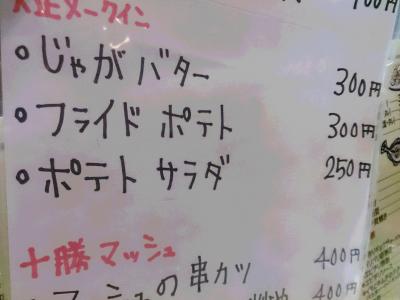 大正メークイン
・じゃがバター 300円
・フライドポテト 300円
・ポテトサラダ 250円
十勝マッシュ 400円
マッシュの串カツ 400円